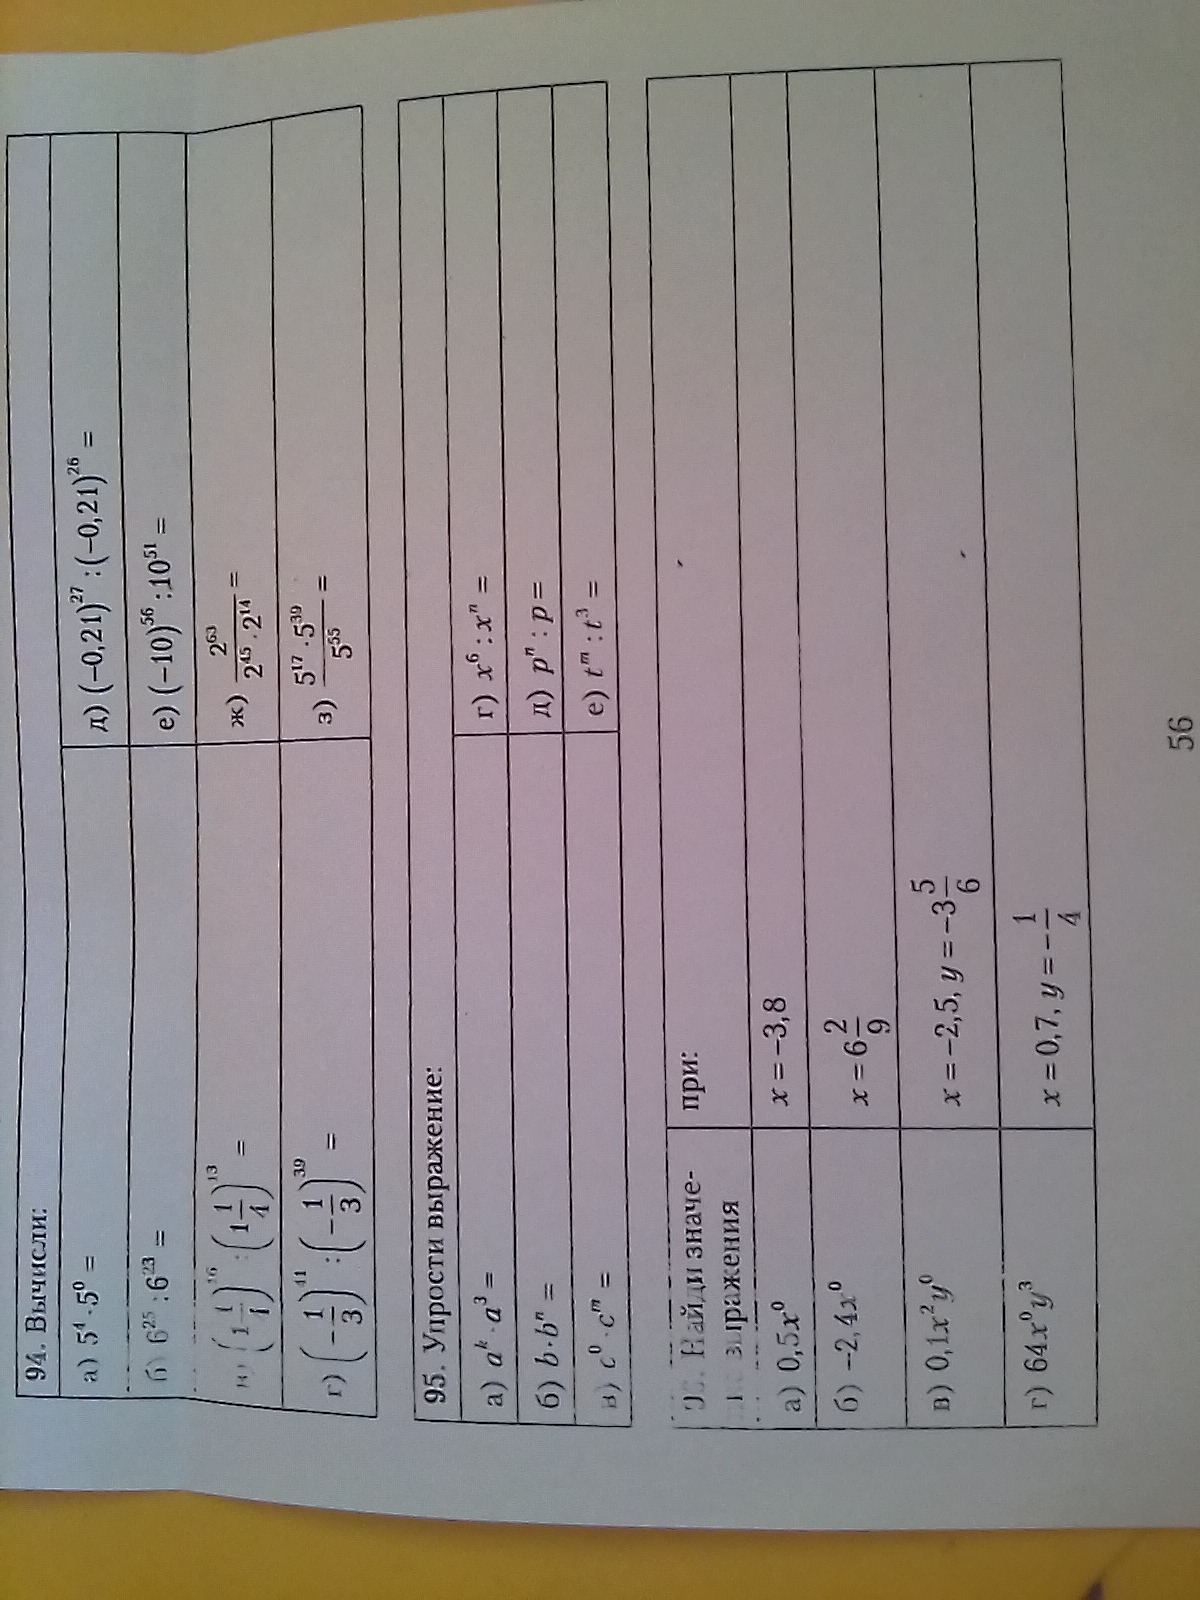 94. Вычисли:
а) 5⁴ · 5⁰ =
д) (−0,21)²⁷ : (−0,21)²⁶ =
б) 6²⁵ : 6²³ =
е) (−10)⁵⁶ : 10⁵¹ =
в) (1 1/4)¹⁶ : (1 1/4)¹³ =
ж) 2⁶³ / (2⁴⁵ · 2¹⁴) =
г) (−1/3)⁴¹ : (−1/3)³⁹ =
з) (5¹⁷ · 5³⁹) / 5⁵⁵ =
95. Упрости выражение:
а) aᵏ · a³ =
г) x⁶ : xⁿ =
б) b · bⁿ =
д) pⁿ : p =
в) c⁰ · cᵐ =
е) tᵐ : t³ =
Найди значе-
ние выражения
при:
а) 0,5x⁰
x = −3,8
б) −2,4x⁰
x = 6 2/9
в) 0,1x²y⁰
x = −2,5, y = −3 5/6
г) 64x⁰y³
x = 0,7, y = −1/4
56